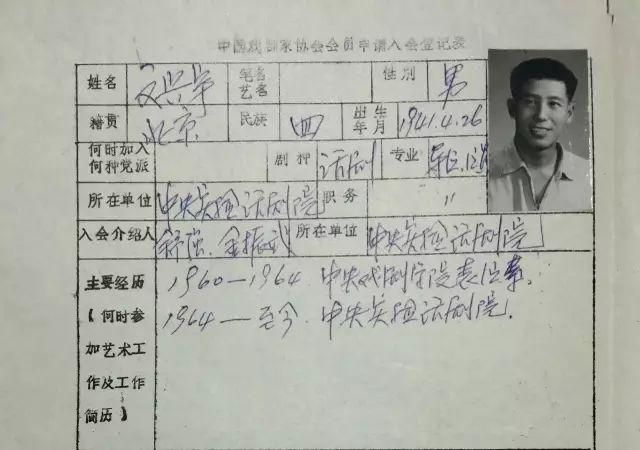 中国戏剧家协会会员申请入会登记表
姓名 文兴宇 笔名艺名 性别 男
籍贯 北京 民族 出生年月 1941.4.26
何时加入何种党派 剧种 话剧 专业 导演
所在单位 中央实验话剧院 职务 〃
入会介绍人 舒强、金振武 所在单位 中央实验话剧院
主要经历 1960—1964 中央戏剧学院表演系.
(何时参 1964—至今 中央实验话剧院.
加艺术工
作及工作
简历)